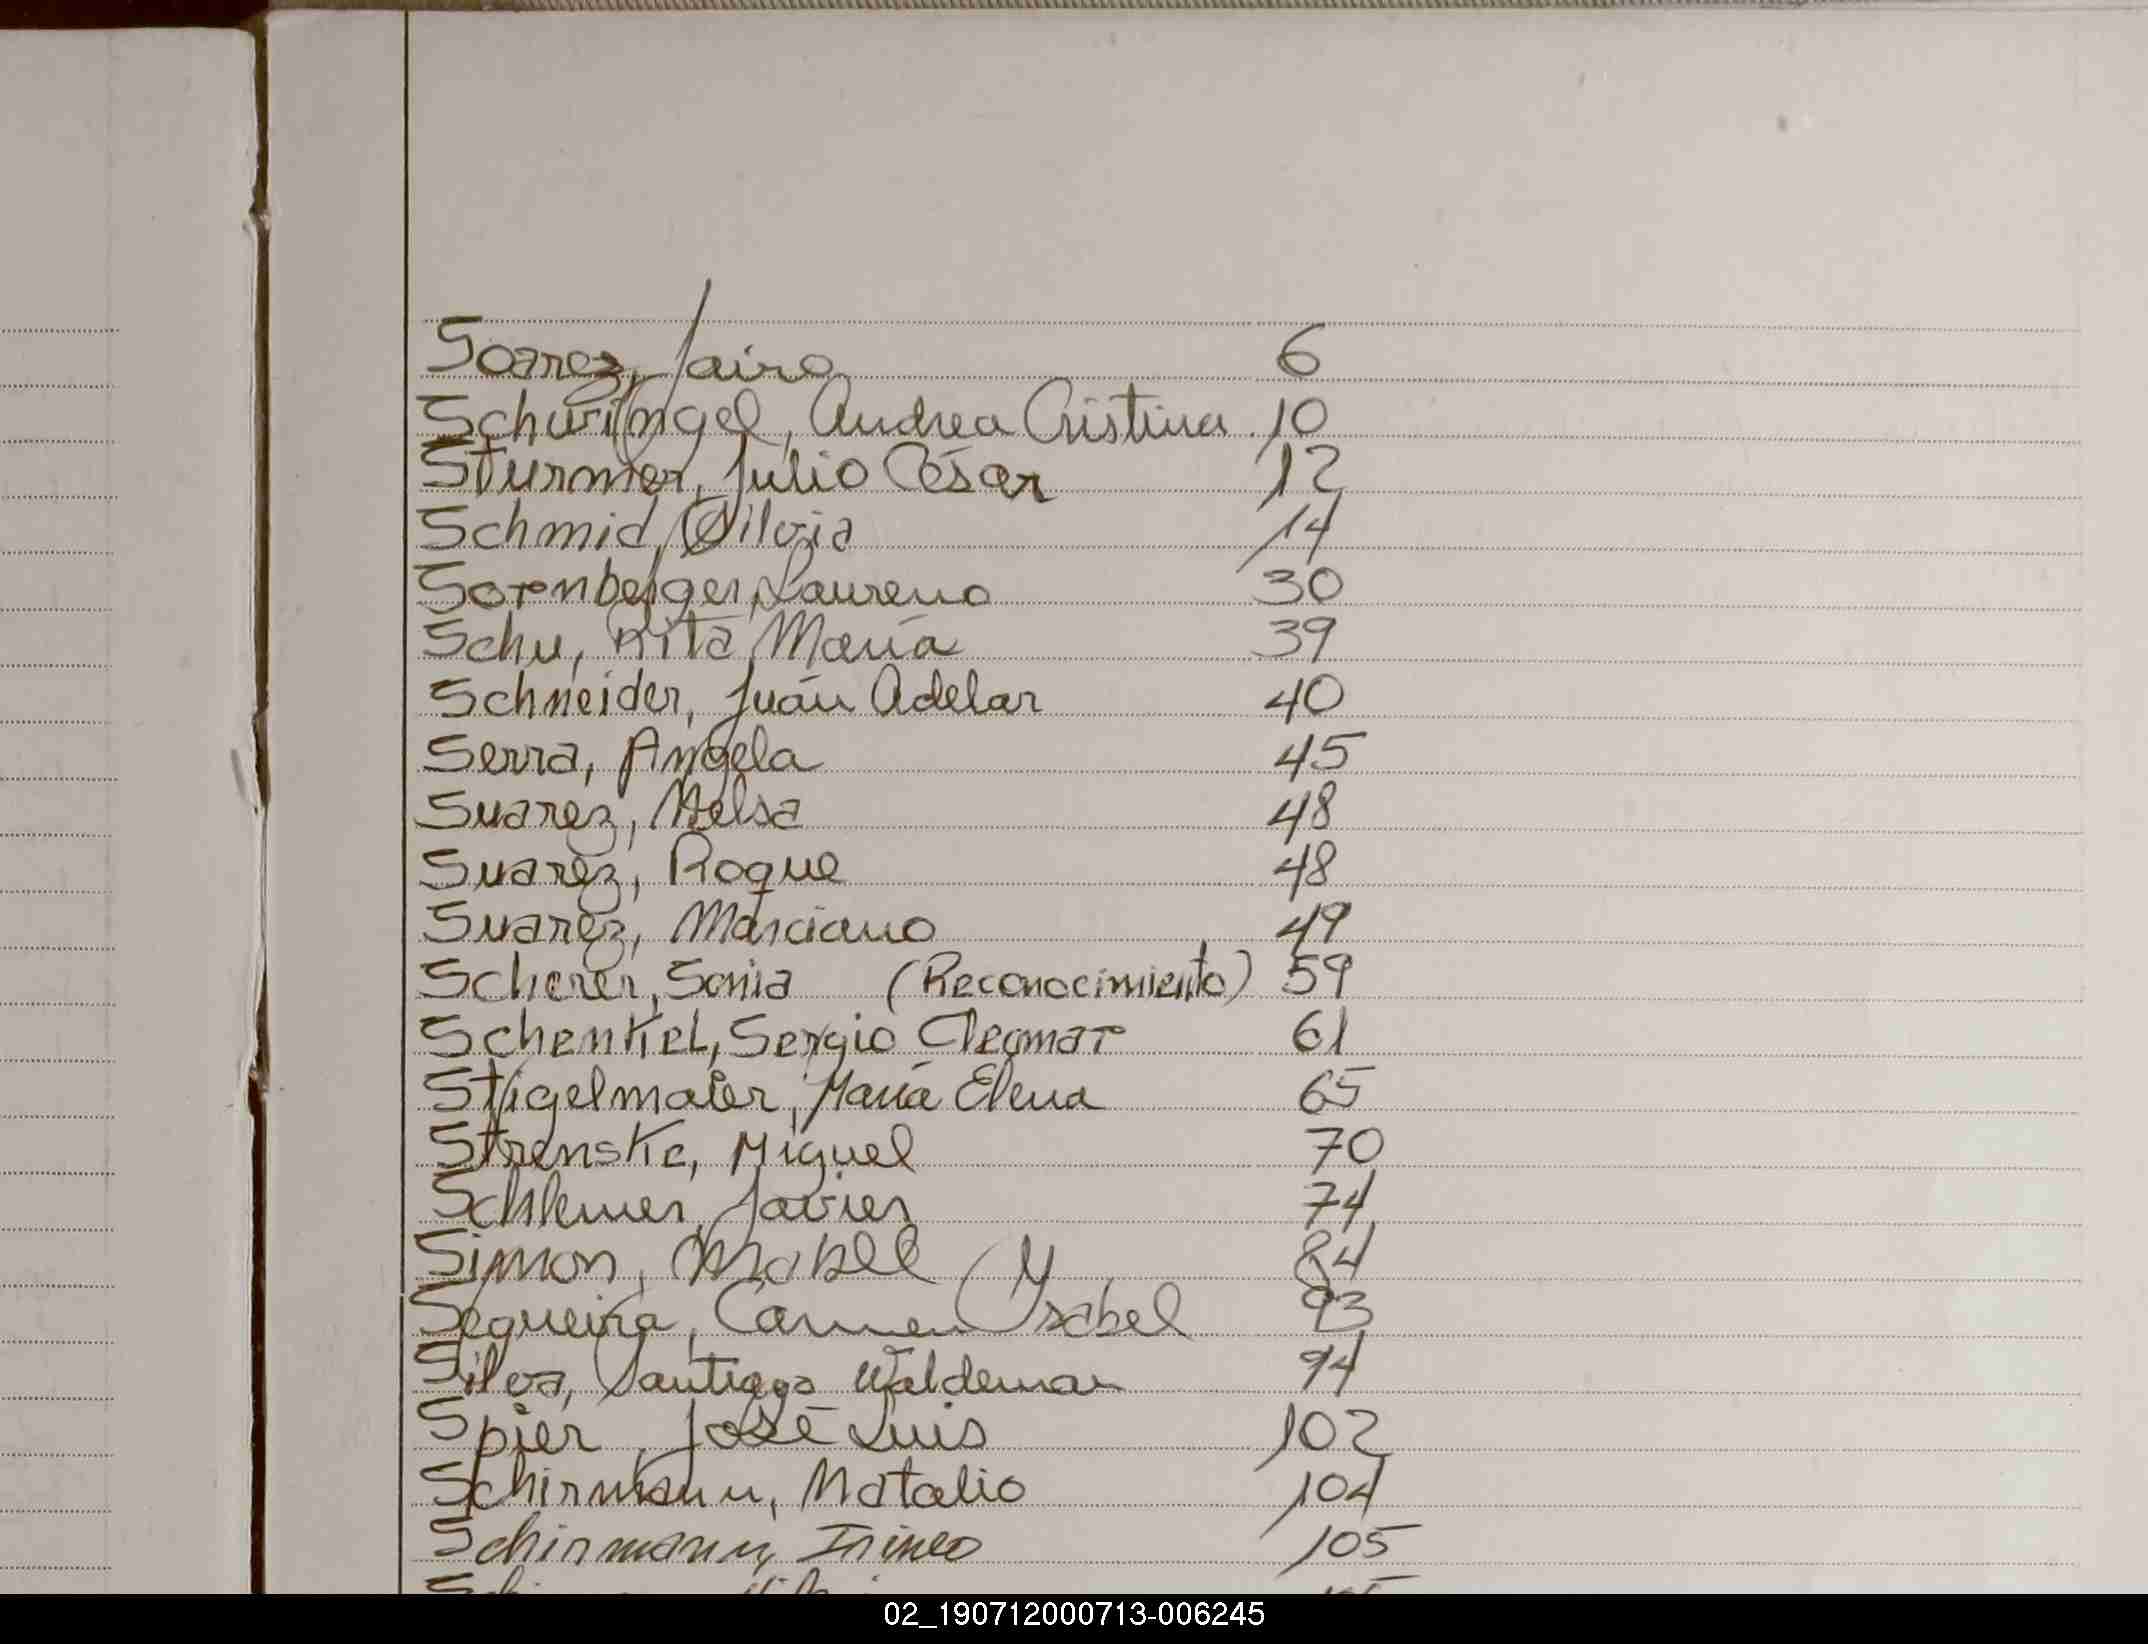 Soarez, Jairo 6
Schwingel, Andrea Cristina 10
Sturmer, Julio César 12
Schmid, Silvia 14
Sorenberger, Laureno 30
Schu, Rita María 39
Schneider, Juán Adelar 40
Serra, Angela 45
Suarez, Nelsa 48
Suarez, Roque 48
Suarez, Marciano 49
Scherer, Sonia (Reconocimiento) 59
Schenkel, Sergio Cleomar 61
Stigelmaier, María Elena 65
Strenske, Miguel 70
Schlemer, Javier 74
Simon, Mabel 84
Sequeira, Carmen Ysabel 93
Silva, Santiago Waldemar 94
Spier, José Luis 102
Schirmann, Natalio 104
Schirmann, Irineo 105
02_190712000713-006245